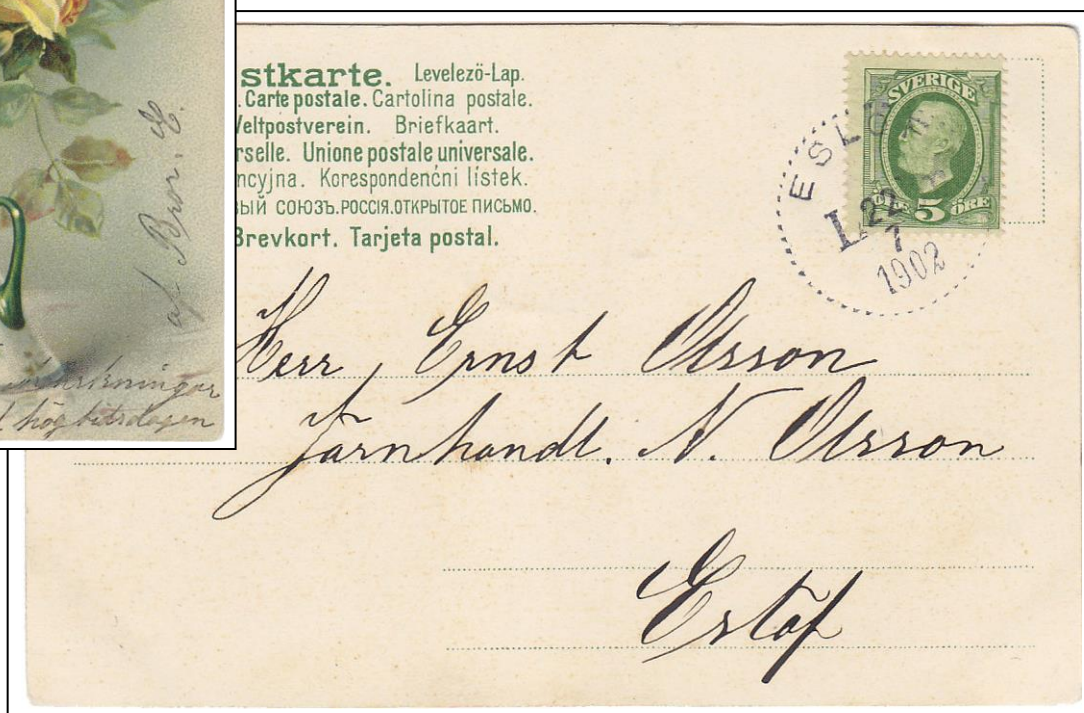 stkarte. Levelező-Lap.
. Carte postale. Cartolina postale.
Weltpostverein. Briefkaart.
rselle. Unione postale universale.
ncyjna. Korespondenčni lístek.
ый союзъ. РОССІЯ. ОТКРЫТОЕ ПИСЬМО.
Brevkort. Tarjeta postal.
SVERIGE
5 ÖRE
ESLÖ
L 22
7
1902
Herr, Ernst Olsson
Järnhandl. N. Olsson
Eslöf
af Bror. E.
högtidsdagen